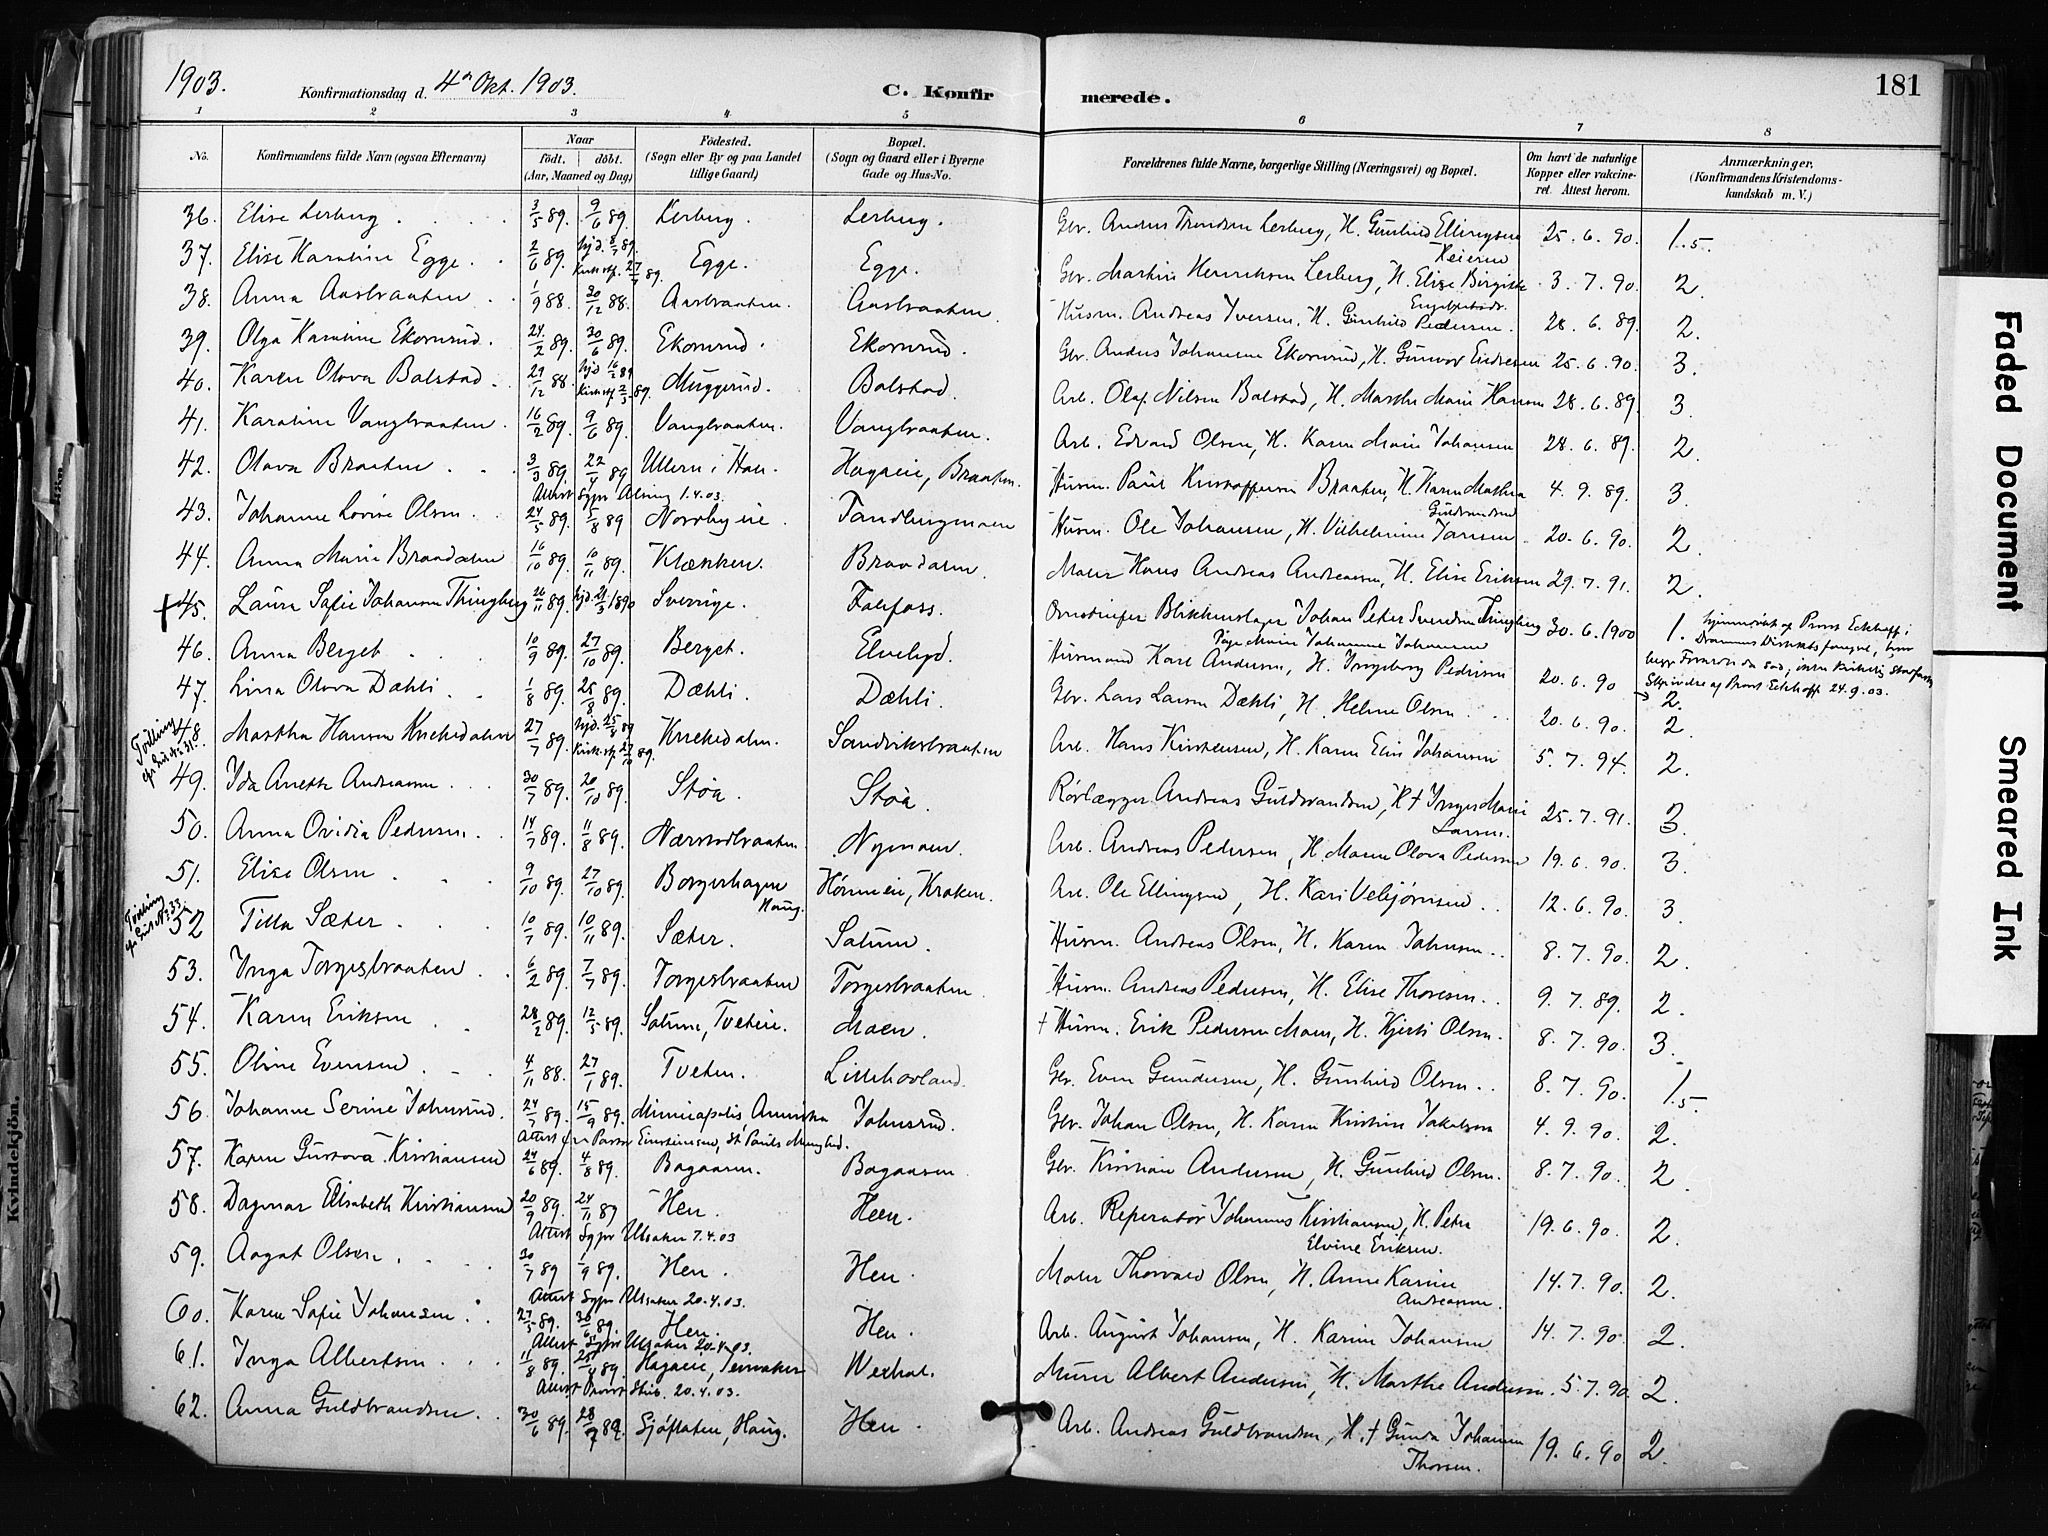 1903.
Konfirmationsdag d. 4de Okt. 1903.
C. Konfirmerede.
181
1 2 3 4 5 6 7 8
No.
Konfirmandens fulde Navn (ogsaa Efternavn)
Naar
født. | døbt.
(Aar, Maaned og Dag)
Fødested.
(Sogn eller By og paa Landet tillige Gaard)
Bopæl.
(Sogn og Gaard eller i Byerne Gade og Hus-No.
Forældrenes fulde Navne, borgerlige Stilling (Næringsvei) og Bopæl.
Om havt de naturlige Kopper eller vaccineret. Attest herom.
Anmærkninger.
(Konfirmandens Kristendomskundskab m. V.)
36. Elise Lerberg 3/5 89. 9/6 89. Lerberg. Lerberg. Gbr. Anders Trondsen Lerberg, H. Gunhild Ellingsen 25.6.90. 1.5.
37. Elise Karoline Egge 2/6 89. hjd. Kirk. Egge. Egge. Gbr. Martin Henriksen Lerberg, H. Elise Birgitte 3.7.90. 2.
38. Anna Aasbraaten 1/9 88. 30/12 88. Aasbraaten. Aasbraaten. Husm. Andreas Iversen, H. Gunhild Pedersen. 28.6.89. 2.
39. Olga Karoline Ekornrud. 24/2 89. 30/6 89. Ekornrud. Ekornrud. Gbr. Anders Johansen Ekornrud, H. Gunvor Endresen 25.6.90. 3.
40. Karen Olava Bolstad. 29/12 88. Muggerud. Bolstad. Arb. Olaf Nilsen Bolstad, H. Marthe Marie Hansen 28.6.89. 3.
41. Karoline Vangbraaten. 16/2 89. 9/6 89. Vangbraaten. Vangbraaten. Arb. Edvard Olsen, H. Karen Marie Johansen 28.6.89. 2.
42. Olava Braaten 3/3 89. 22/4 89 Ullern i Hole. Hagaeie, Braaten. Husm. Paul Kristoffersen Braaten, H. Karen Mathea Guldbrandsen 4.9.89. 3.
43. Johanne Lovise Olsen. 24/5 89. 5/8 89 Nordbyeie. Tandbergmoen Husm. Ole Johansen, H. Vilhelmine Jansen 20.6.90. 2.
44. Anna Marie Braadalen 16/10 89. 10/11 89. Klækken. Braadalen. Maler Hans Andreas Andreassen, H. Elise Eriksen 29.7.91. 2.
45. Laura Sofie Johansen Thingberg 26/11 89. Sverrige. Follfoss. Blikkenslager Johan Peter Svendsen Thingberg 30.6.1900 1.
46. Anna Berget 10/9 89. 27/10 89. Berget. Elvelyd. Husmand Karl Andersen, H. Ingeborg Pedersen 20.6.90 2.
47. Lina Olava Dæhli 1/8 89. 25/8 89. Dæhli. Dæhli. Gbr. Lars Larsen Dæhli, H. Helene Olsen 20.6.90. 2.
48. Martha Hansen Knekedalen 27/7 89. Knekedalen. Sandviksbraaten Arb. Hans Kristensen, H. Karen Elise Johansen 5.7.94. 2.
49. Ida Anette Andreasen 30/7 89. 20/10 89. Støa. Støa. Rørlægger Andreas Guldbrandsen, H. † Inger Marie Larsen. 25.7.91. 3.
50. Anna Ovidia Pedersen. 14/7 89. 11/8 89. Nærstadbraaten Nymoen. Arb. Andreas Pedersen, H. Maren Olava Pedersen 19.6.90. 3.
51. Elise Olsen 9/10 89. 27/10 89. Borgerhagen Haug. Hønneeie, Kroken. Arb. Ole Ellingsen, H. Kari Vebjørnsen 12.6.90. 3.
52 Tilla Sæter 10/7 89. 10/11 89. Sæter. Solum. Husm. Andreas Olsen, H. Karen Johnsen 8.7.90. 2.
53. Inga Torgesbraaten 6/2 89. 7/7 89. Torgesbraaten Torgesbraaten. Husm. Andreas Pedersen, H. Elise Thoresen 9.7.89. 2.
54. Karen Eriksen 28/2 89. 12/5 89. Solum, Tveteie. Moen. † Husm. Erik Pedersen Moen, H. Kjersti Olsen. 8.7.90. 3.
55. Oline Evensen 4/11 88. 27/1 89. Tveten. Lillehovland. Gbr. Even Gundersen, H. Gunhild Olsen 8.7.90. 1.5.
56. Johanne Serine Johnsrud. 24/7 89. 15/9 89. Minneapolis, Amerika Johnsrud. Gbr. Johan Olsen, H. Karen Kirstine Jakobsen 4.9.90. 2.
57. Karen Gustava Kristiansen 24/6 89. 4/8 89. Bagaasen. Bagaasen. Gbr. Kristian Andersen, H. Gunhild Olsen. 8.7.90. 2.
58. Dagmar Elisabeth Kristiansen 20/9 89. 24/11 89 Hen. Heen. Arb. Reperatør Johannes Kristiansen, H. Petra Elvine Eriksen. 19.6.90. 2.
Attest Sgpr Ulsaker 7.4.03
59. Aagot Olsen 30/7 89 1/9 89. Hen. Hen. Maler Thorvald Olsen, H. Anne Karine Andreasen. 14.7.90. 2.
Attest Sgpr Ulsaker 20.4.03.
60. Karen Sofie Johansen 27/5 89. 30/6 89. Hen. Hen. Arb. August Johansen, H. Karine Johansen 14.7.90. 2.
Attest Sgpr Ulsaker 20.4.03.
61. Inga Albertsen 11/8 89. Hagaeie, Wexhal. Murer Albert Andersen, H. Marthe Andersen 5.7.90 2.
20.4.03.
62. Anna Guldbrandsen 30/6 89. 28/7 89. Sjøflaten, Haug. Hen. Arb. Andreas Guldbrandsen, H. † Gunda Johanne Thorsen. 19.6.90 2.
Kvindekjøn.
Faded Document
Smeared Ink